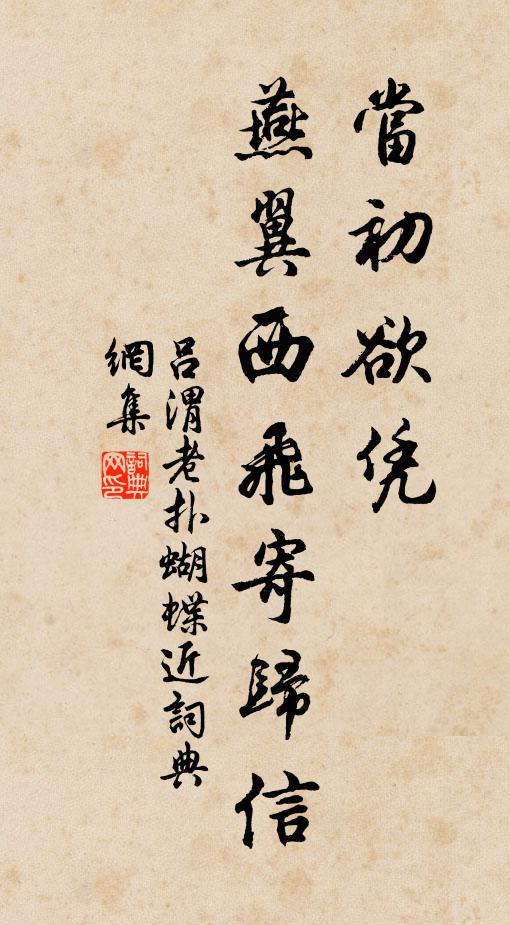 當初欲凭
燕翼西飛寄歸信
吕渭老扑蝴蝶近詞典
網集
詞典
网印